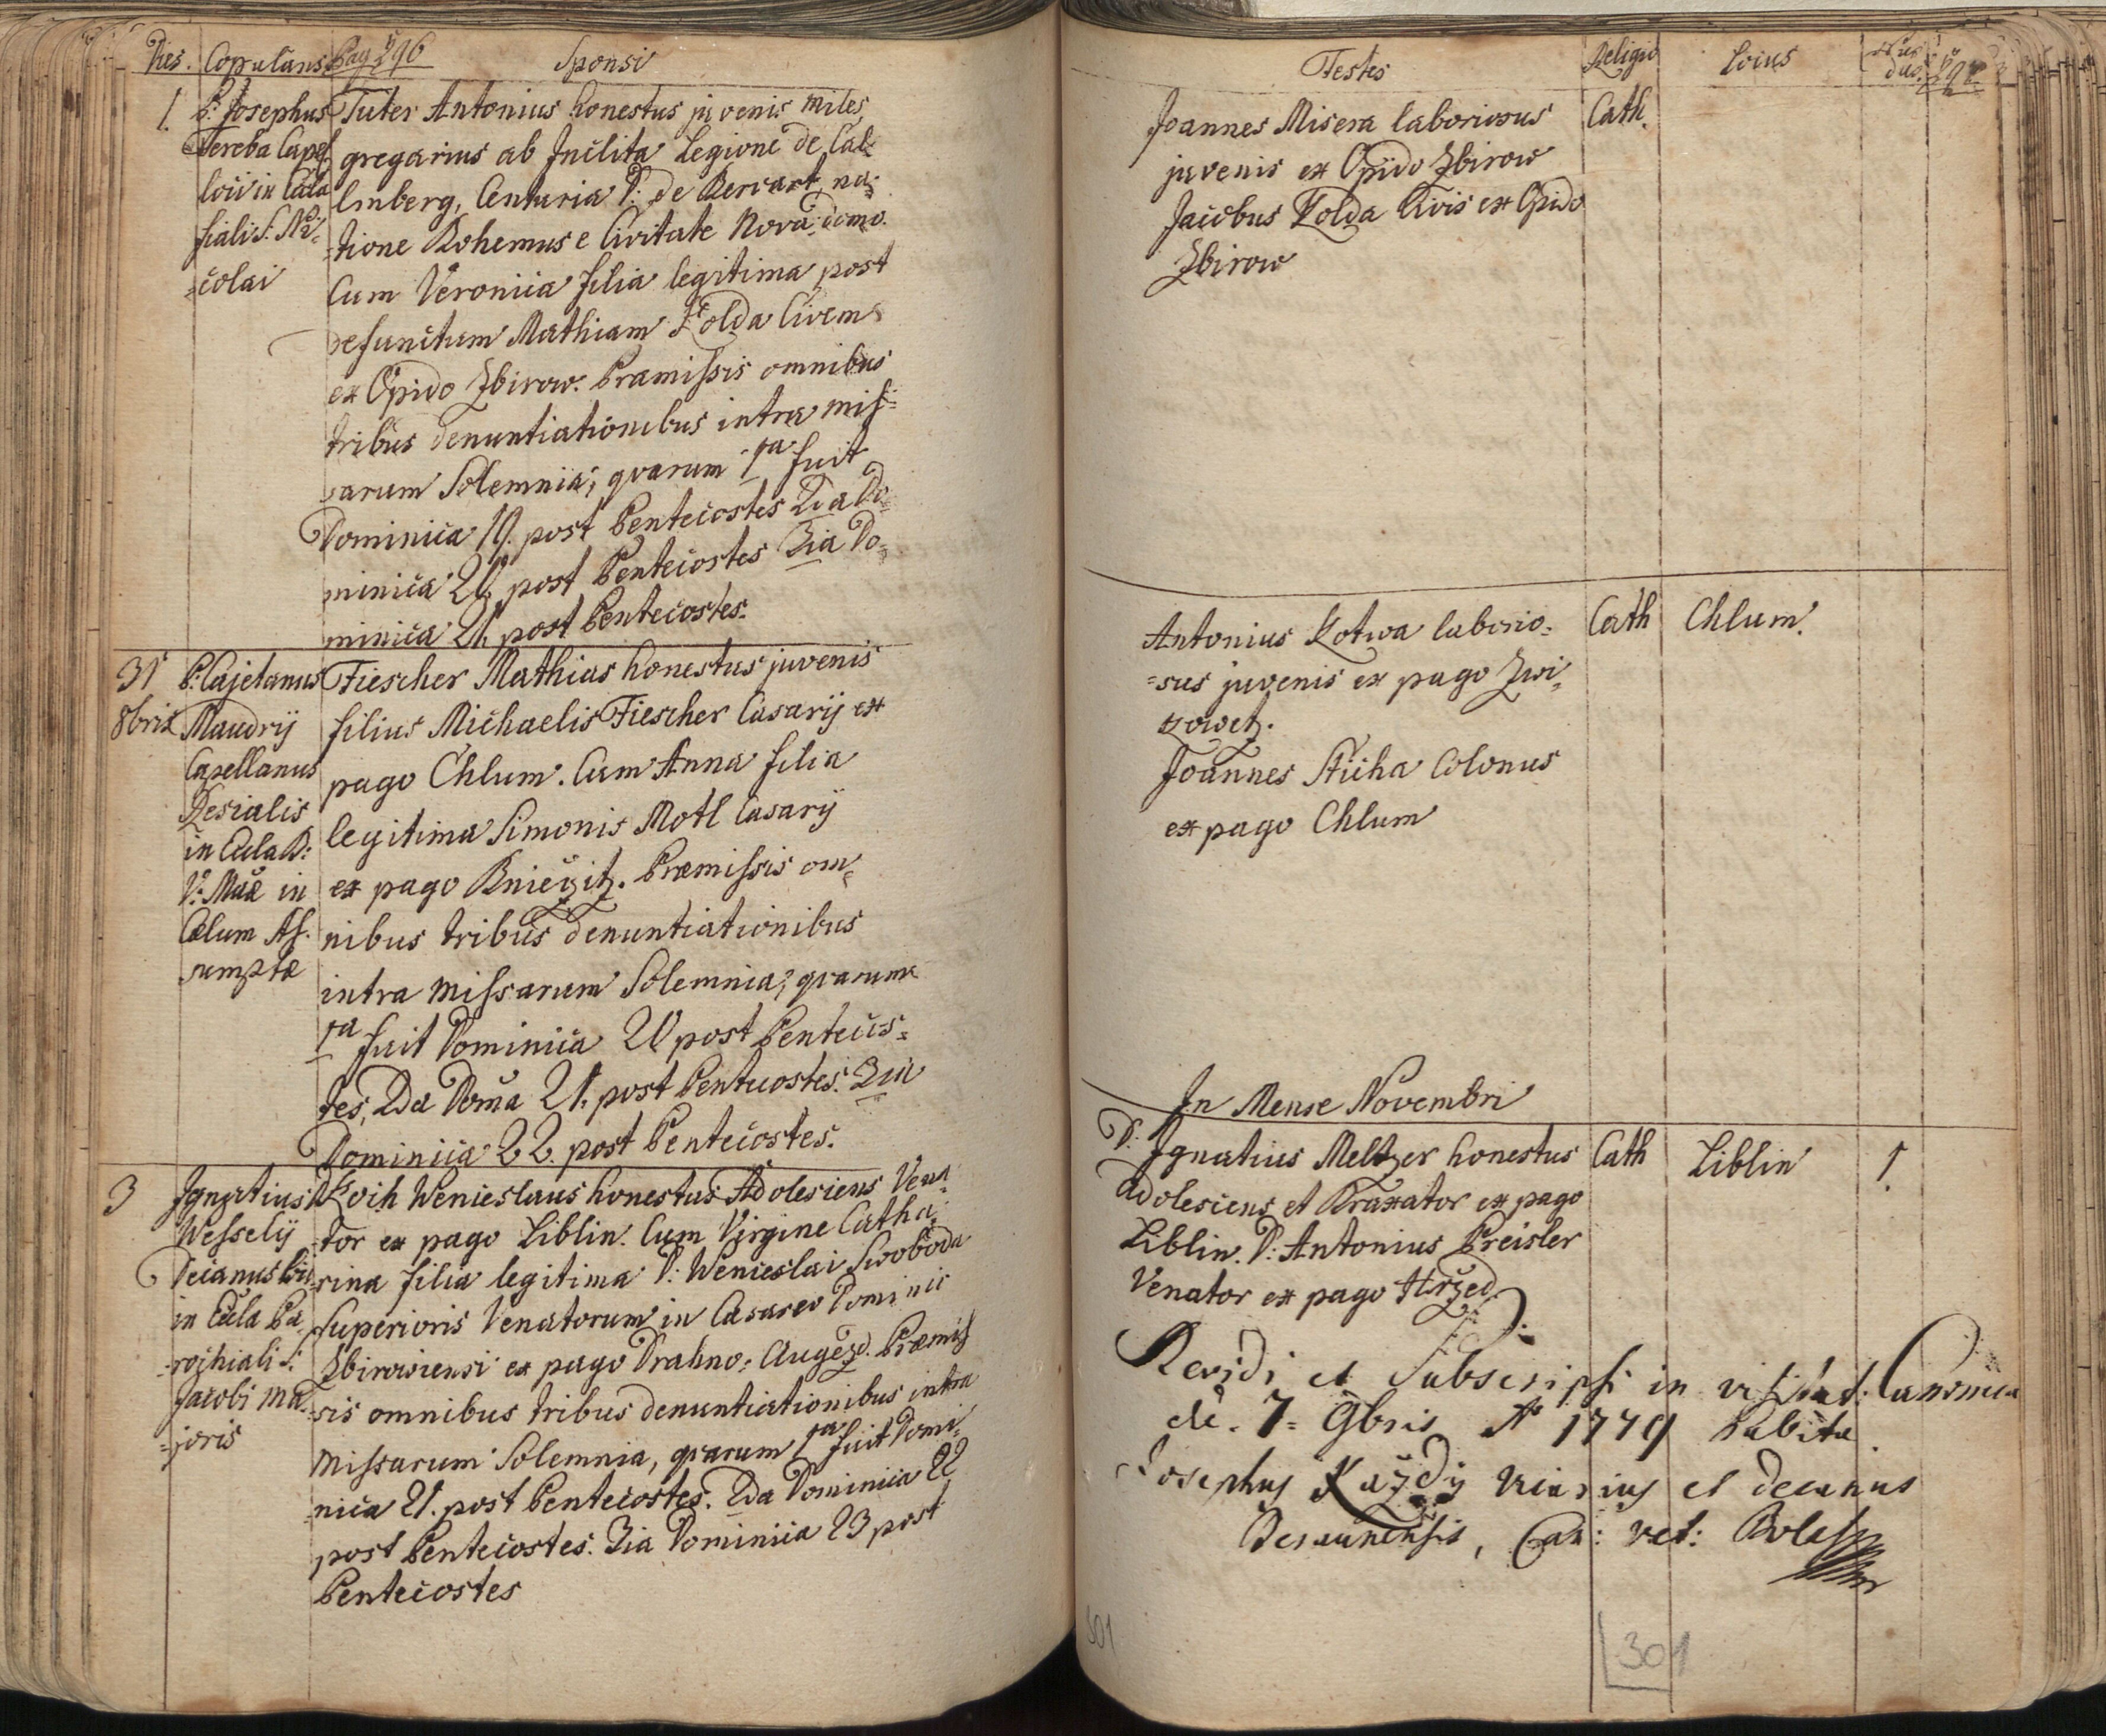 Dies. Copulans Pag 296 Sponsi
1. P: Josephus
Tereba Capel
loci in Eccla
filiali S: Ni-
=colai
Tuter Antonius honestus juvenis miles
gregarius ab Inclita Legione de Cal=
lmberg, Centuria D: de Bervart, na=
=tione Bohemus e Civitate Nova domo.
Cum Veronica filia legitima post
defunctum Mathiam Folda Civem
ex Opido Zbirow. Præmissis omnibus
tribus denuntiationibus intra mis=
sarum Solemnia; quarum 1ma fuit
Dominica 19. post Pentecostes 2da Do=
minica 20. post Pentecostes 3tia Do=
minica 21. post Pentecostes.
31
8bris
P: Cajetanus
Maudrij
Capellanus
Resialis
in Eccla B:
V: Mariæ in
Cælum As.
sumptæ
Fiescher Mathias honestus juvenis
filius Michaelis Fiescher Casarij ex
pago Chlum. Cum Anna filia
legitima Simonis Motl Casarij
ex pago Kniežitz. Præmissis om=
nibus tribus denuntiationibus
intra missarum Solemnia; quarum
1ma fuit Dominica 20 post Pentecos=
tes, 2da Domca 21. post Pentecostes. 3tia
Dominica 22. post Pentecostes.
3
Ignatius
Wesselij
Decanus loci
in Eccla Pa=
=rochiali S:
Jacobi Ma=
=joris
Koch Wenceslaus honestus Adolescens Vena=
tor ex pago Liblin. Cum Virgine Catha=
=rina filia legitima D: Wenceslai Swoboda
Superioris Venatorum in Cæsareo Dominio
Zbirowiensi ex pago Drahno: Augezd. Præmis
sis omnibus tribus denuntiationibus intra
Missarum Solemnia, quarum 1ma fuit Domi=
nica 21. post Pentecostes. 2da Dominica 22
post Pentecostes. 3tia Dominica 23 post
Pentecostes
Testes Religio Locus
Joannes Misera laboriosus Cath.
juvenis ex Opido Zbirow
Jacobus Folda Civis ex Opido
Zbirow
Antonius Kotwa laborio= Cath Chlum.
=sus juvenis ex pago Zwi=
kowetz.
Joannes Sticha Colonus
ex pago Chlum
In Mense Novembri
D: Ignatius Meltzer honestus Cath Liblin 1.
Adolescens et Braxator ex pago
Liblin. D: Antonius Preisler
Venator ex pago Hržed
Revidi et Subscripsi in visitat: Canonica
de. 7= 9bris Ao 1779 habita.
Josephus Každý Vicarius et decanus
Beraunensis, Can: vet: Bolesl
301
301